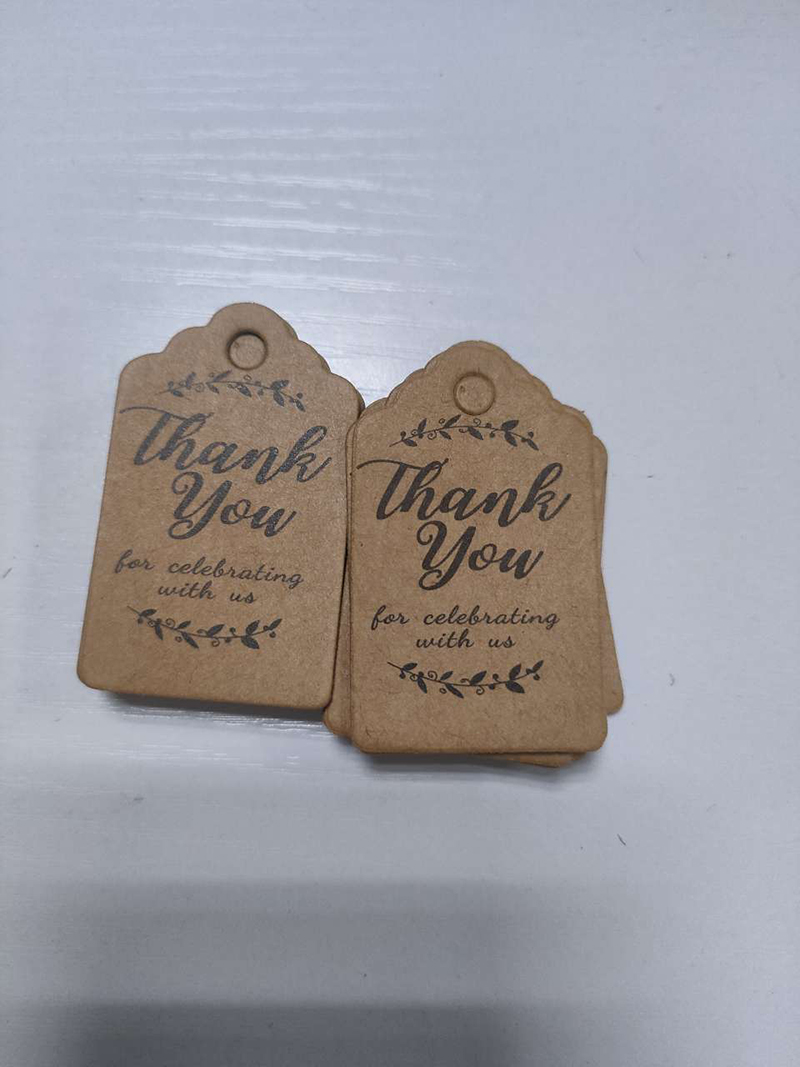 Thank
You
for celebrating
with us
Thank
You
for celebrating
with us